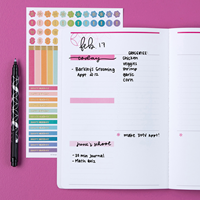 feb 17
today
• Barkley's Grooming
Appt @ 12
groceries:
chicken
veggies
shrimp
garlic
corn
• make Dr's appt!
june's school
• 20 min journal
• Math quiz